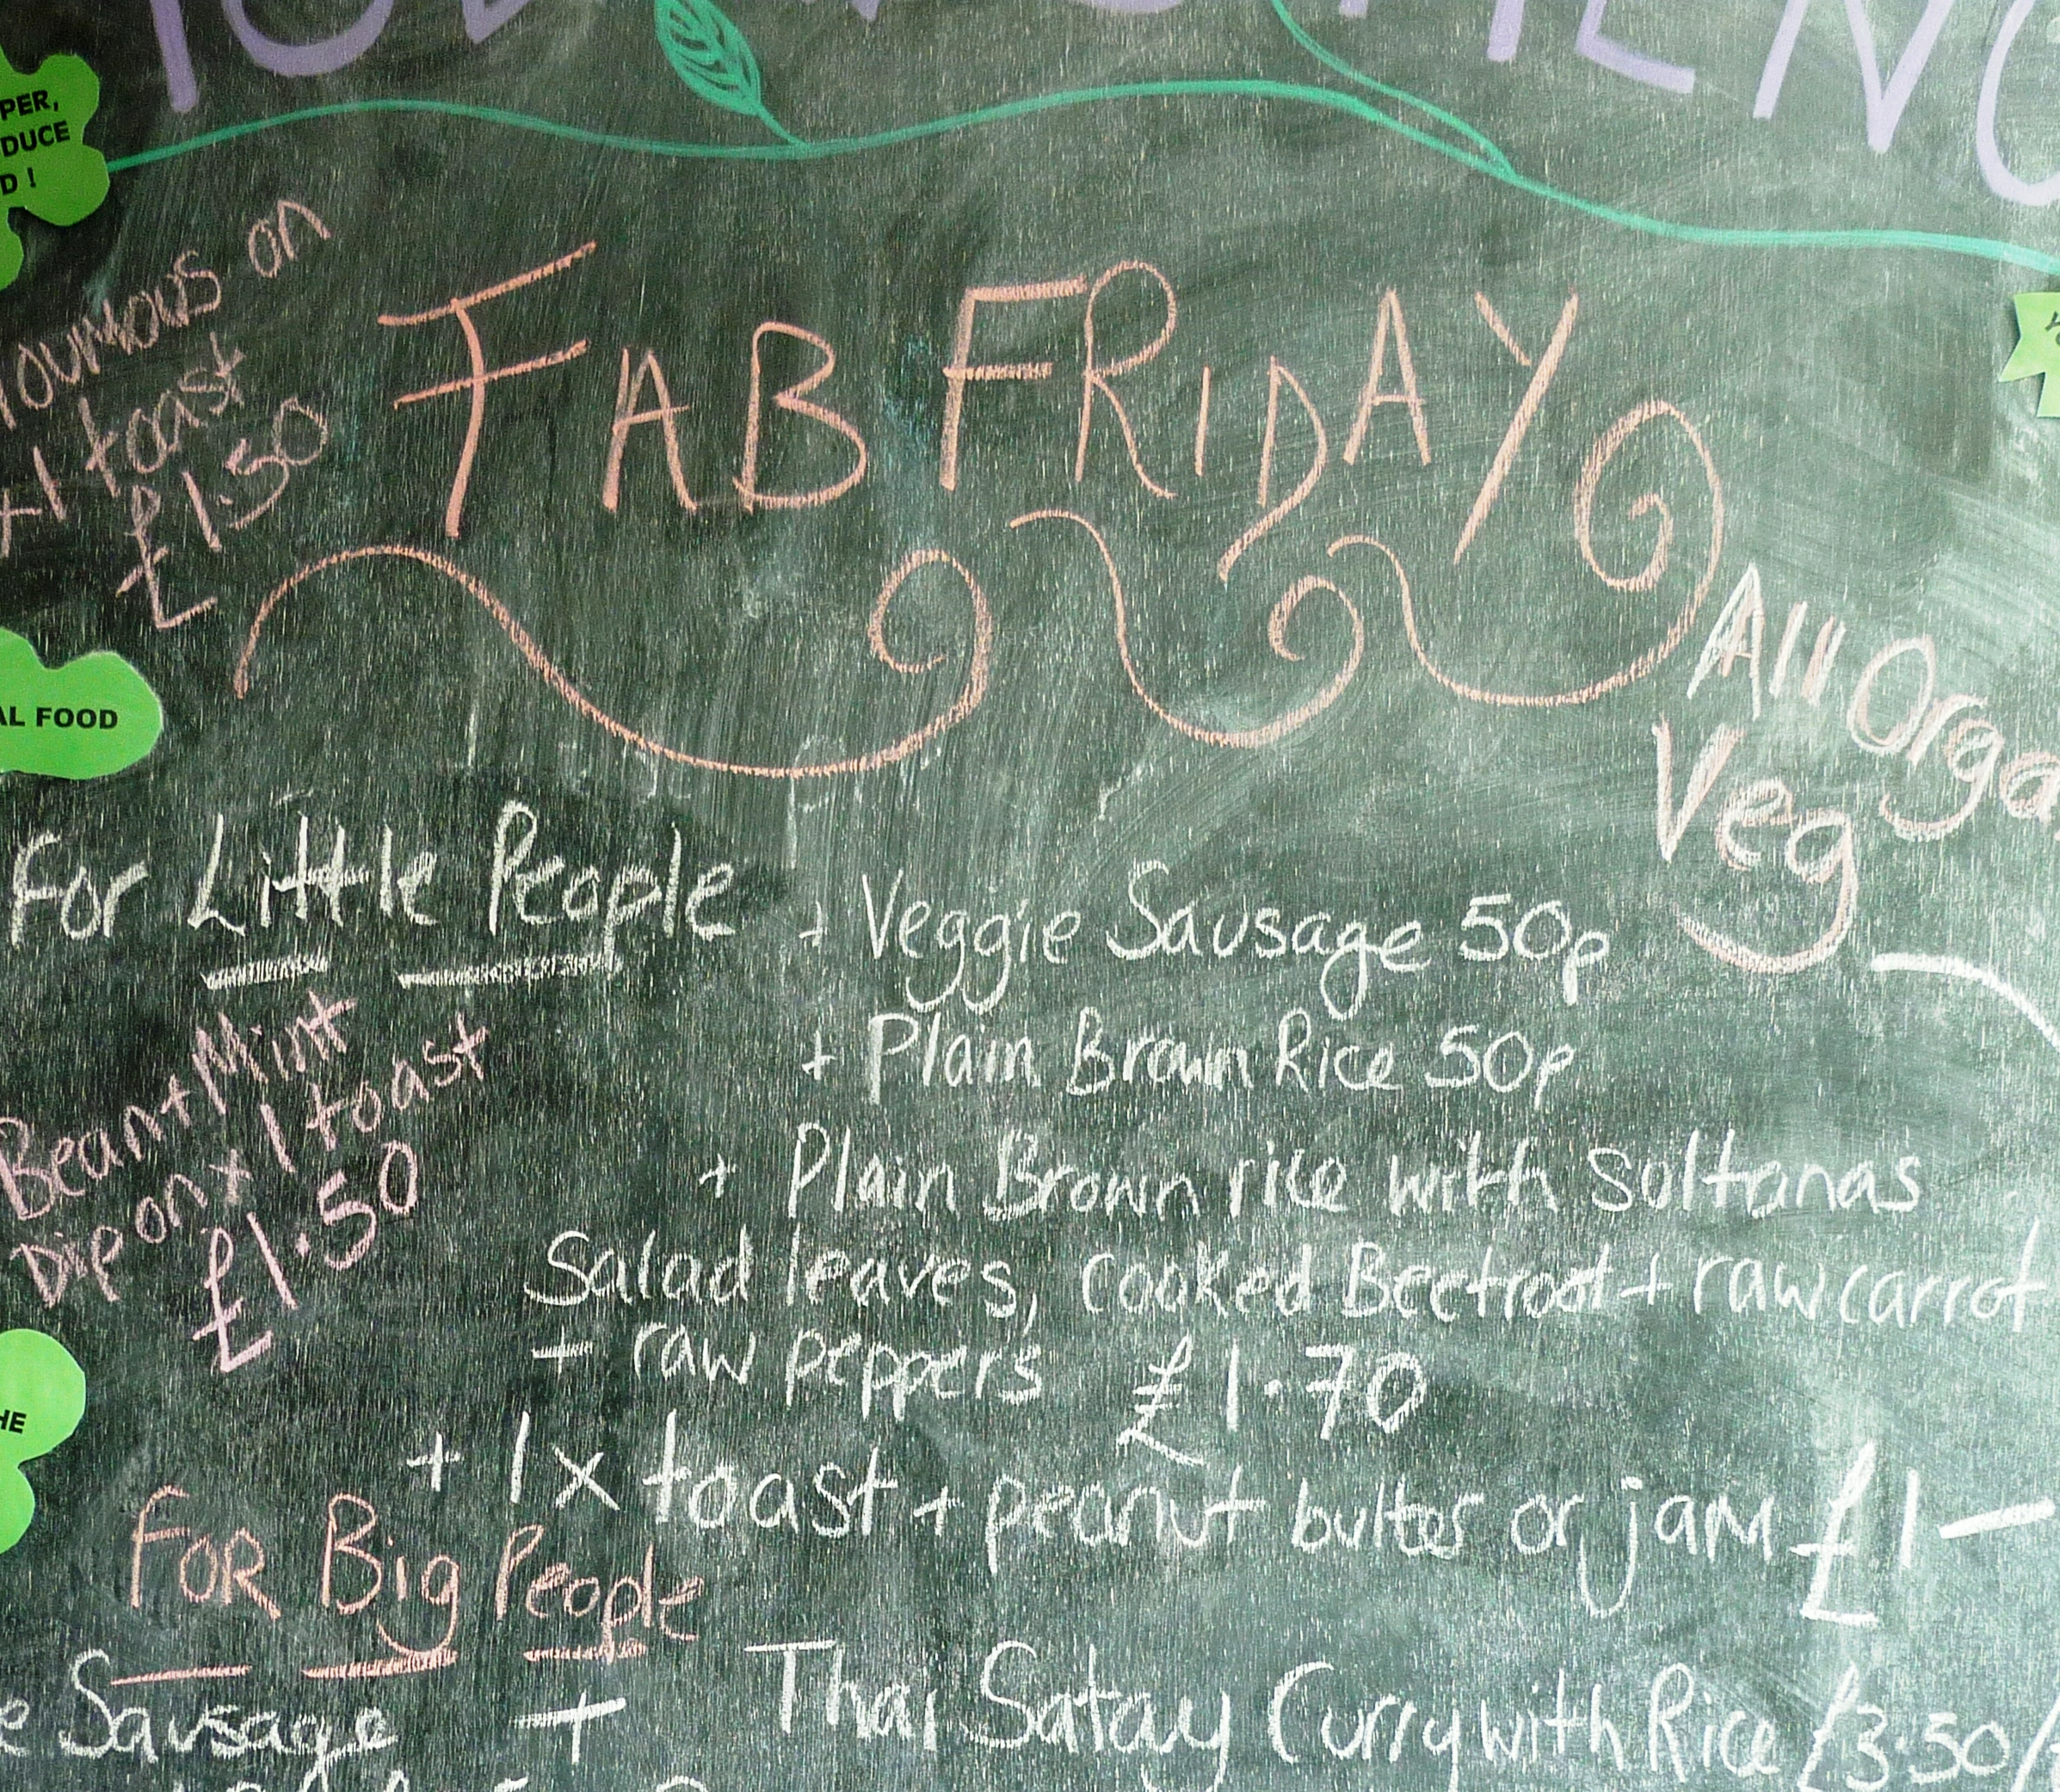 PER,
DUCE
D !
on
+1 toast
£1.50
FAB FRIDAY
All
Veg
AL FOOD
For Little People
+ Veggie Sausage 50p
+ Plain Brown Rice 50p
Bean + Mint
Dip on x 1 toast
£1.50
+ Plain Brown rice with sultanas
Salad leaves, cooked Beetroot + raw carrot
+ raw peppers £1.70
HE
+ 1x toast + peanut butter or jam £1-
FOR Big People
e Sausage + Thai Satay Curry with Rice £3.50/